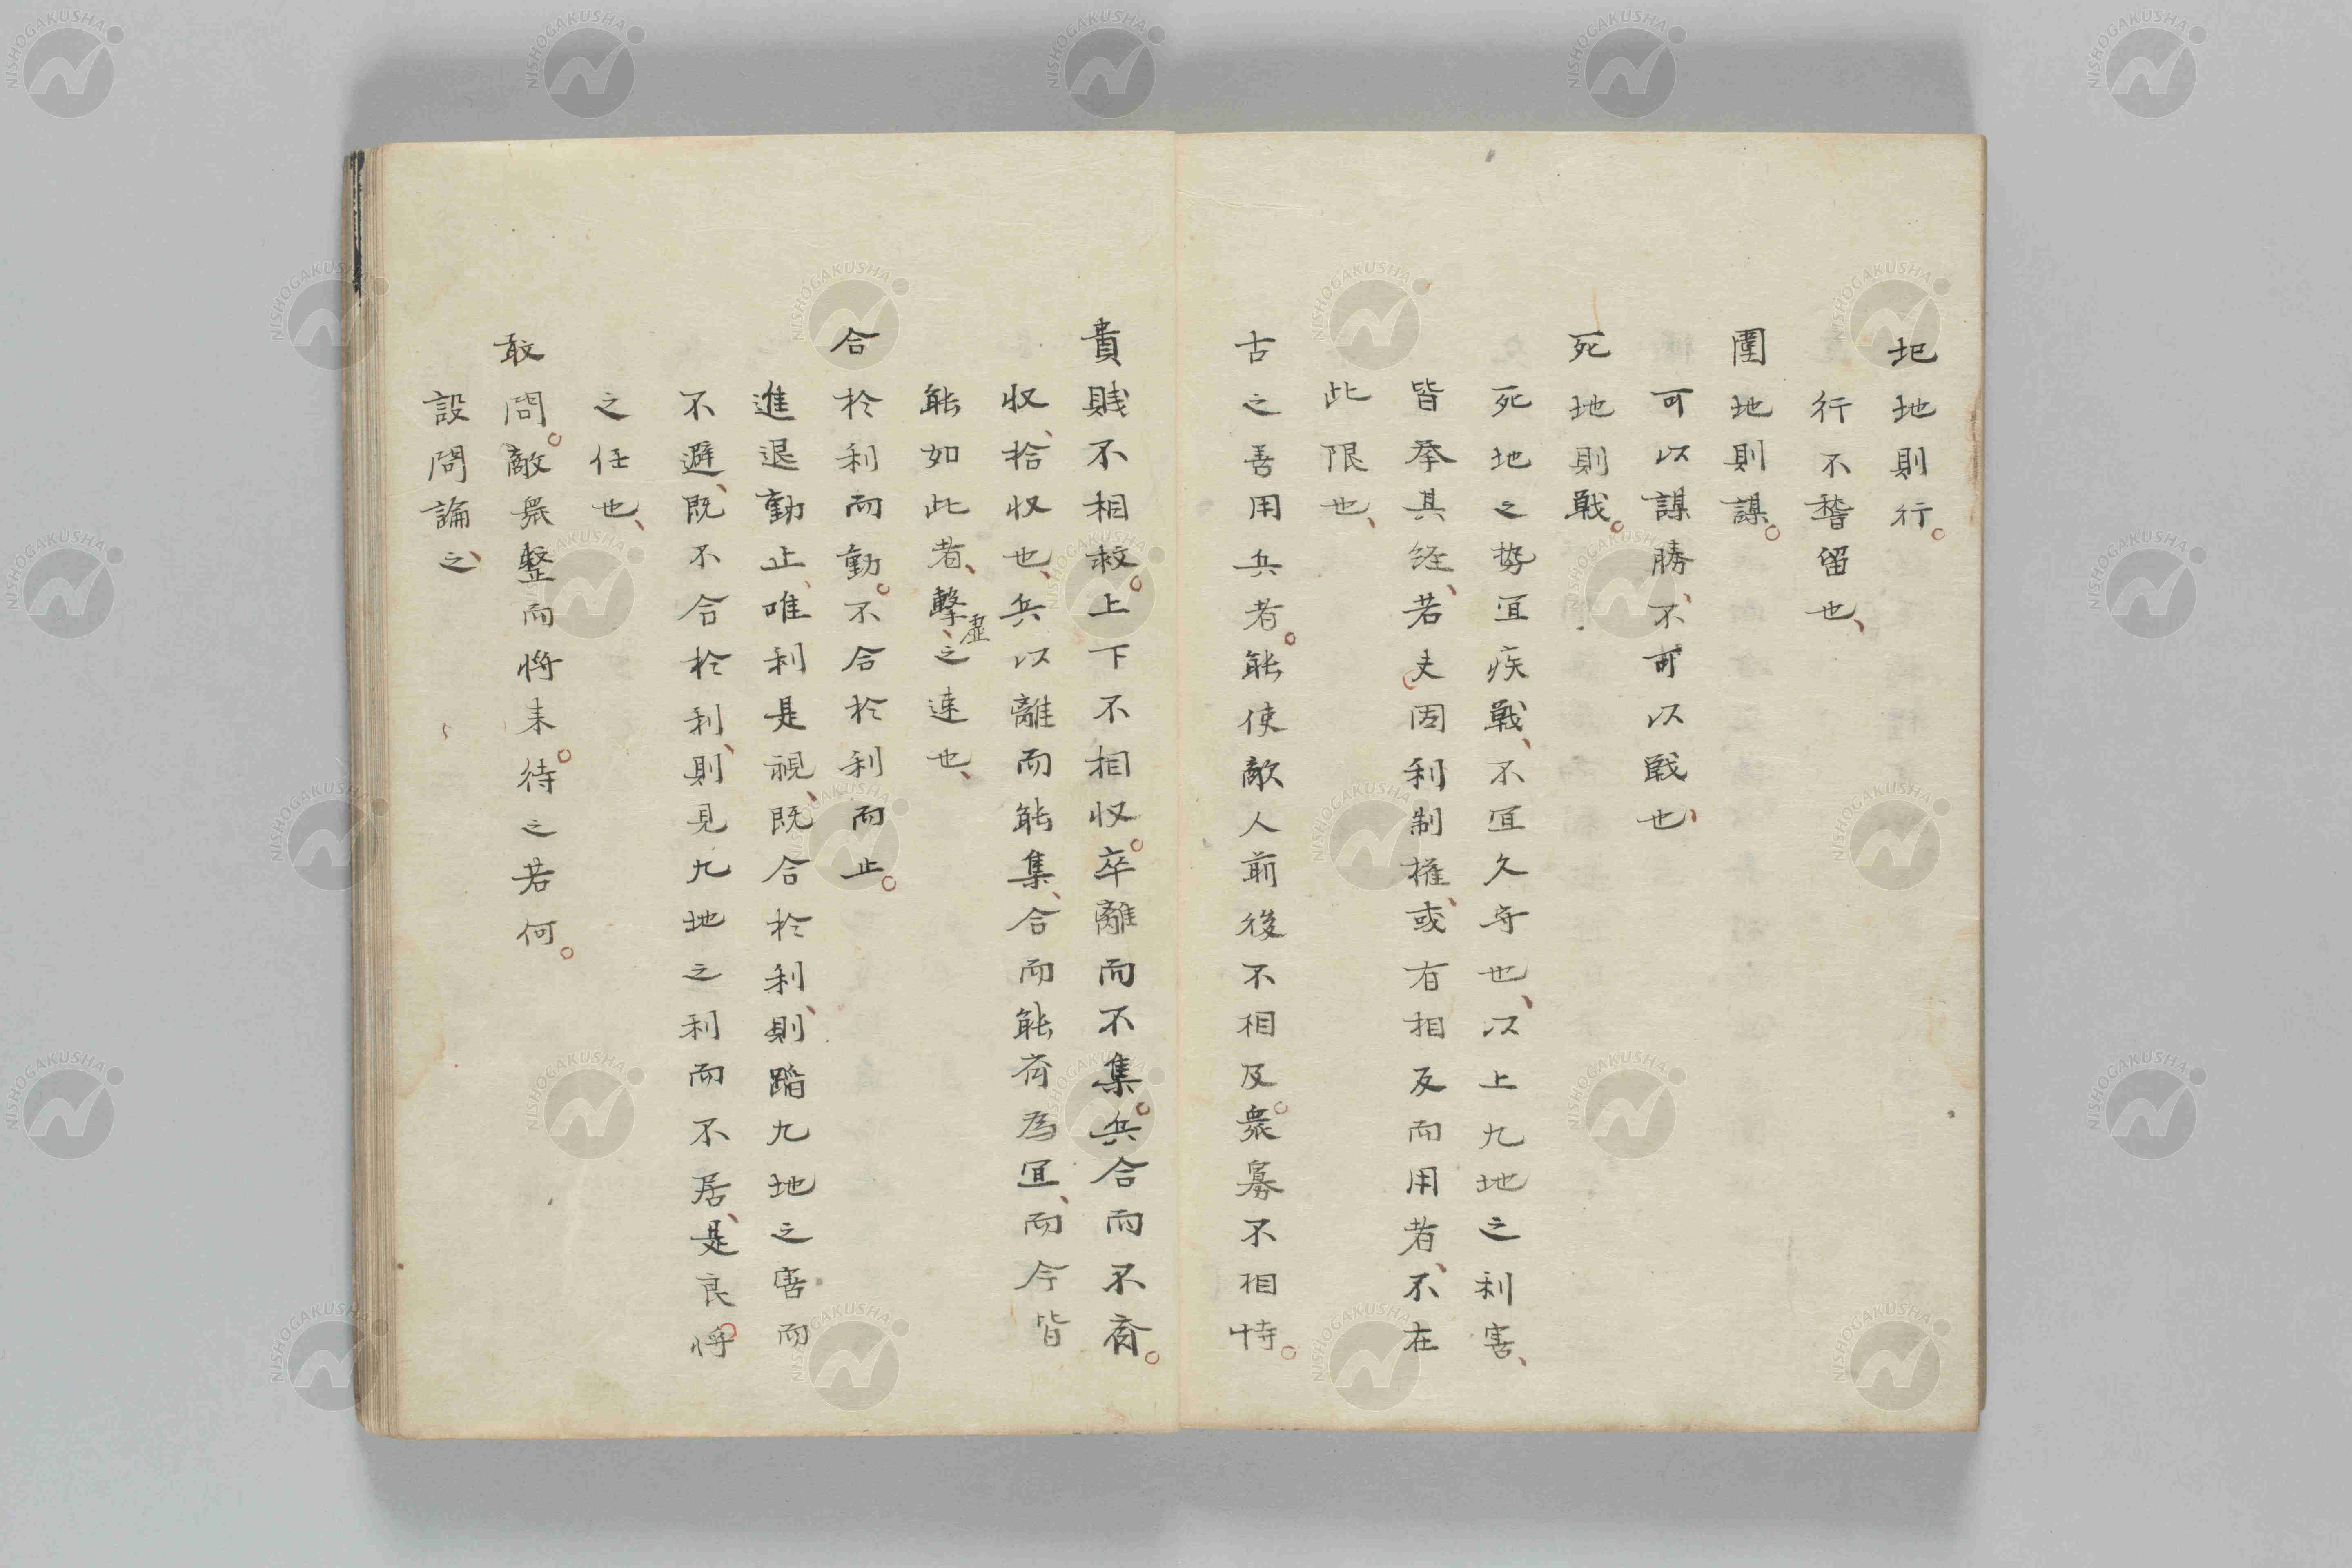 圯地則行。
行不稽留也、
圍地則謀。
可以謀勝、不可以戦也、
死地則戰。
死地之勢宜疾戰、不宜久守也、以上九地之利害、
皆挙其経、若夫因利制權、或有相反而用者、不在
此限也、
古之善用兵者。能使敵人前後不相及。衆寡不相恃。
貴賎不相救。上下不相収。卒離而不集。兵合而不斉。
収、拾収也、兵以離而能集、合而能斉為宜、而今皆
能如此者、擊、之速也、
虚
合於利而動。不合於利而止。
進退動止、唯利是視、既合於利、則蹈九地之害而
不避、既不合於利、則見九地之利而不居、是良将
之任也、
敢問。敵衆整而将来。待之若何。
設問論之、